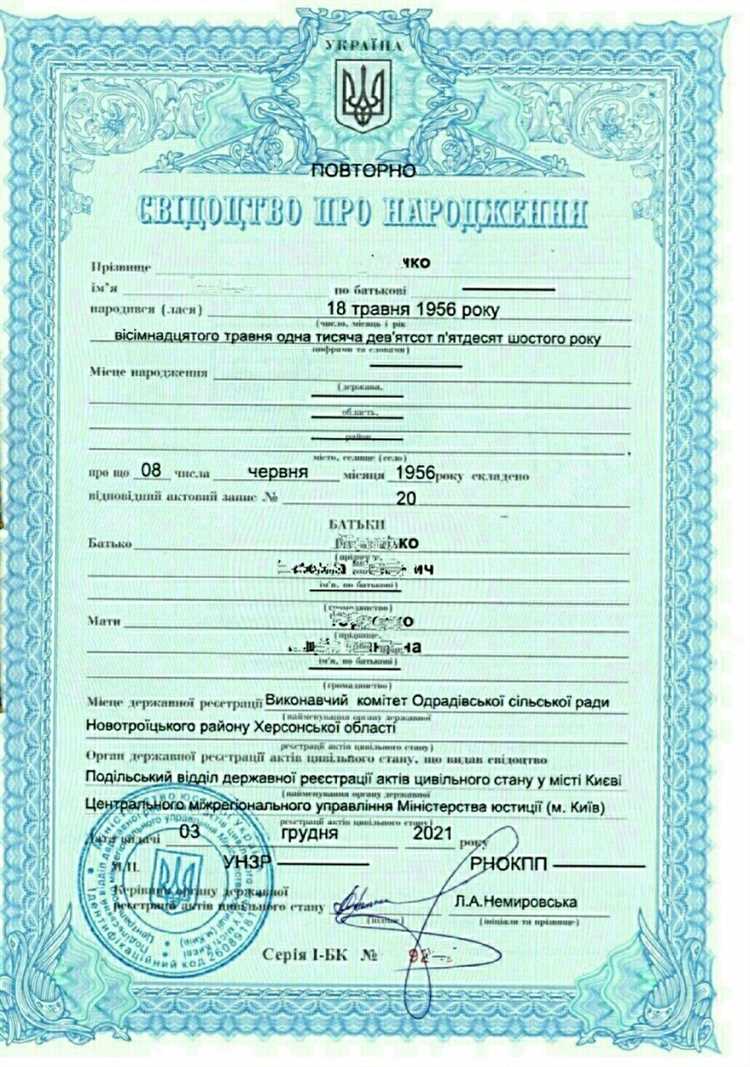 УКРАЇНА
ПОВТОРНО
СВІДОЦТВО ПРО НАРОДЖЕННЯ
Прізвище чко
ім'я по батькові
народився (лася) 18 травня 1956 року
(число, місяць і рік
вісімнадцятого травня одна тисяча дев'ятсот п'ятдесят шостого року
цифрами та словами)
Місце народження
(держава,
область,
район,
місто, селище (село)
про що 08 числа червня місяця 1956 року складено
відповідний актовий запис № 20
БАТЬКИ
Батько ко
(прізвище,
ич
ім'я, по батькові)
(громадянство)
Мати о
(прізвище,
на
ім'я, по батькові)
(громадянство)
Місце державної реєстрації Виконавчий комітет Одрадівської сільської ради
(найменування органу державної
Новотроїцького району Херсонської області
реєстрації актів цивільного стану)
Орган державної реєстрації актів цивільного стану, що видав свідоцтво
Подільський відділ державної реєстрації актів цивільного стану у місті Києві
(найменування органу державної
Центрального міжрегіонального управління Міністерства юстиції (м. Київ)
реєстрації актів цивільного стану)
Дата видачі 03 грудня 2021 року
М.П. УНЗР РНОКПП
Керівник органу державної
реєстрації актів цивільного стану Л.А.Немировська
(підпис) (ініціали та прізвище)
Серія І-БК № 92